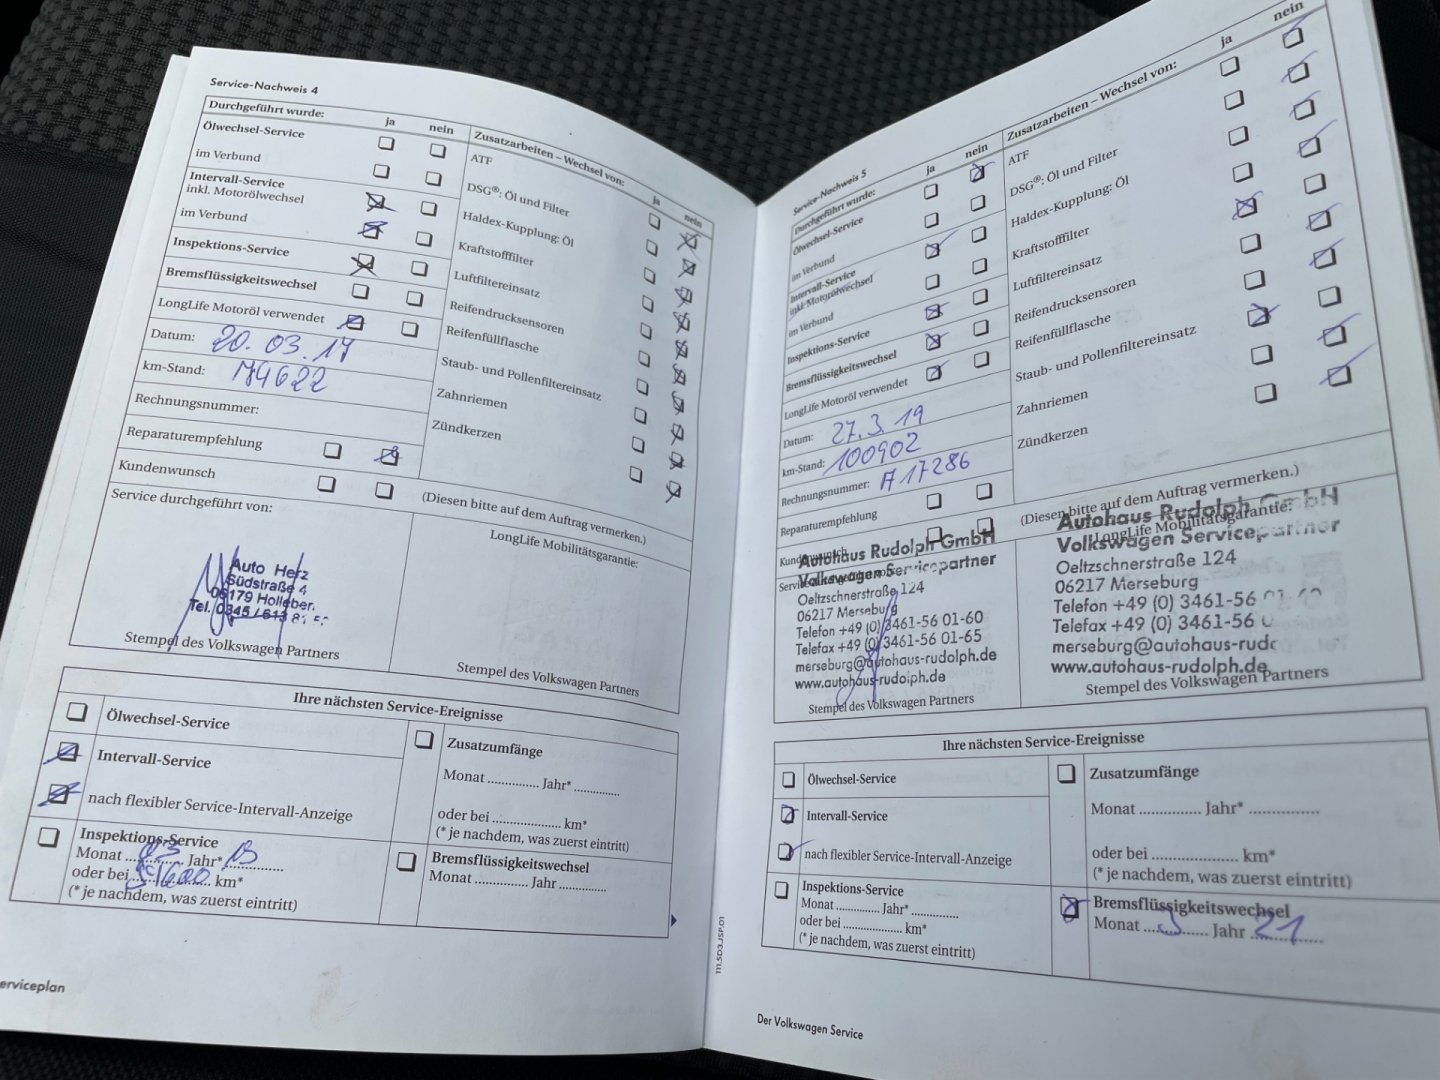 Service-Nachweis 4
Durchgeführt wurde: ja nein
Ölwechsel-Service
im Verbund
Intervall-Service
inkl. Motorölwechsel
im Verbund
Inspektions-Service
Bremsflüssigkeitswechsel
LongLife Motoröl verwendet
Datum: 20.03.17
km-Stand: 74622
Rechnungsnummer:
Reparaturempfehlung
Kundenwunsch
(Diesen bitte auf dem Auftrag vermerken.)
Zusatzarbeiten – Wechsel von: ja nein
ATF
DSG®: Öl und Filter
Haldex-Kupplung: Öl
Kraftstofffilter
Luftfiltereinsatz
Reifendrucksensoren
Reifenfüllflasche
Staub- und Pollenfiltereinsatz
Zahnriemen
Zündkerzen
Service durchgeführt von:
Auto Herz
Südstraße 4
06179 Holleben
Tel. 0345 / 613
Stempel des Volkswagen Partners
LongLife Mobilitätsgarantie:
Stempel des Volkswagen Partners
Ihre nächsten Service-Ereignisse
Ölwechsel-Service
Intervall-Service
nach flexibler Service-Intervall-Anzeige
Inspektions-Service
Monat ... 03 ... Jahr* ...
oder bei ... km*
(* je nachdem, was zuerst eintritt)
Zusatzumfänge
Monat ............. Jahr* .............
oder bei .................... km*
(* je nachdem, was zuerst eintritt)
Bremsflüssigkeitswechsel
Monat ............. Jahr .............
erviceplan
Service-Nachweis 5
Durchgeführt wurde: ja nein
Ölwechsel-Service
im Verbund
Intervall-Service
inkl. Motorölwechsel
im Verbund
Inspektions-Service
Bremsflüssigkeitswechsel
LongLife Motoröl verwendet
Datum: 27.3.19
km-Stand: 100902
Rechnungsnummer: A17286
Reparaturempfehlung
Kundenwunsch
(Diesen bitte auf dem Auftrag vermerken.)
Zusatzarbeiten – Wechsel von: ja nein
ATF
DSG®: Öl und Filter
Haldex-Kupplung: Öl
Kraftstofffilter
Luftfiltereinsatz
Reifendrucksensoren
Reifenfüllflasche
Staub- und Pollenfiltereinsatz
Zahnriemen
Zündkerzen
Autohaus Rudolph GmbH
Volkswagen Servicepartner
Oeltzschnerstraße 124
06217 Merseburg
Telefon +49 (0) 3461-56 01-60
Telefax +49 (0) 3461-56 01-65
merseburg@autohaus-rudolph.de
www.autohaus-rudolph.de
Stempel des Volkswagen Partners
LongLife Mobilitätsgarantie:
Autohaus Rudolph GmbH
Volkswagen Servicepartner
Oeltzschnerstraße 124
06217 Merseburg
Telefon +49 (0) 3461-56
Telefax +49 (0) 3461-56
merseburg@autohaus-rud
www.autohaus-rudolph.de
Stempel des Volkswagen Partners
Ihre nächsten Service-Ereignisse
Ölwechsel-Service
Intervall-Service
nach flexibler Service-Intervall-Anzeige
Inspektions-Service
Monat ............. Jahr* .............
oder bei .................... km*
(* je nachdem, was zuerst eintritt)
Zusatzumfänge
Monat ............. Jahr* .............
oder bei .................... km*
(* je nachdem, was zuerst eintritt)
Bremsflüssigkeitswechsel
Monat ... 3 ... Jahr ... 21 ...
111.5D3.JSP.01
Der Volkswagen Service